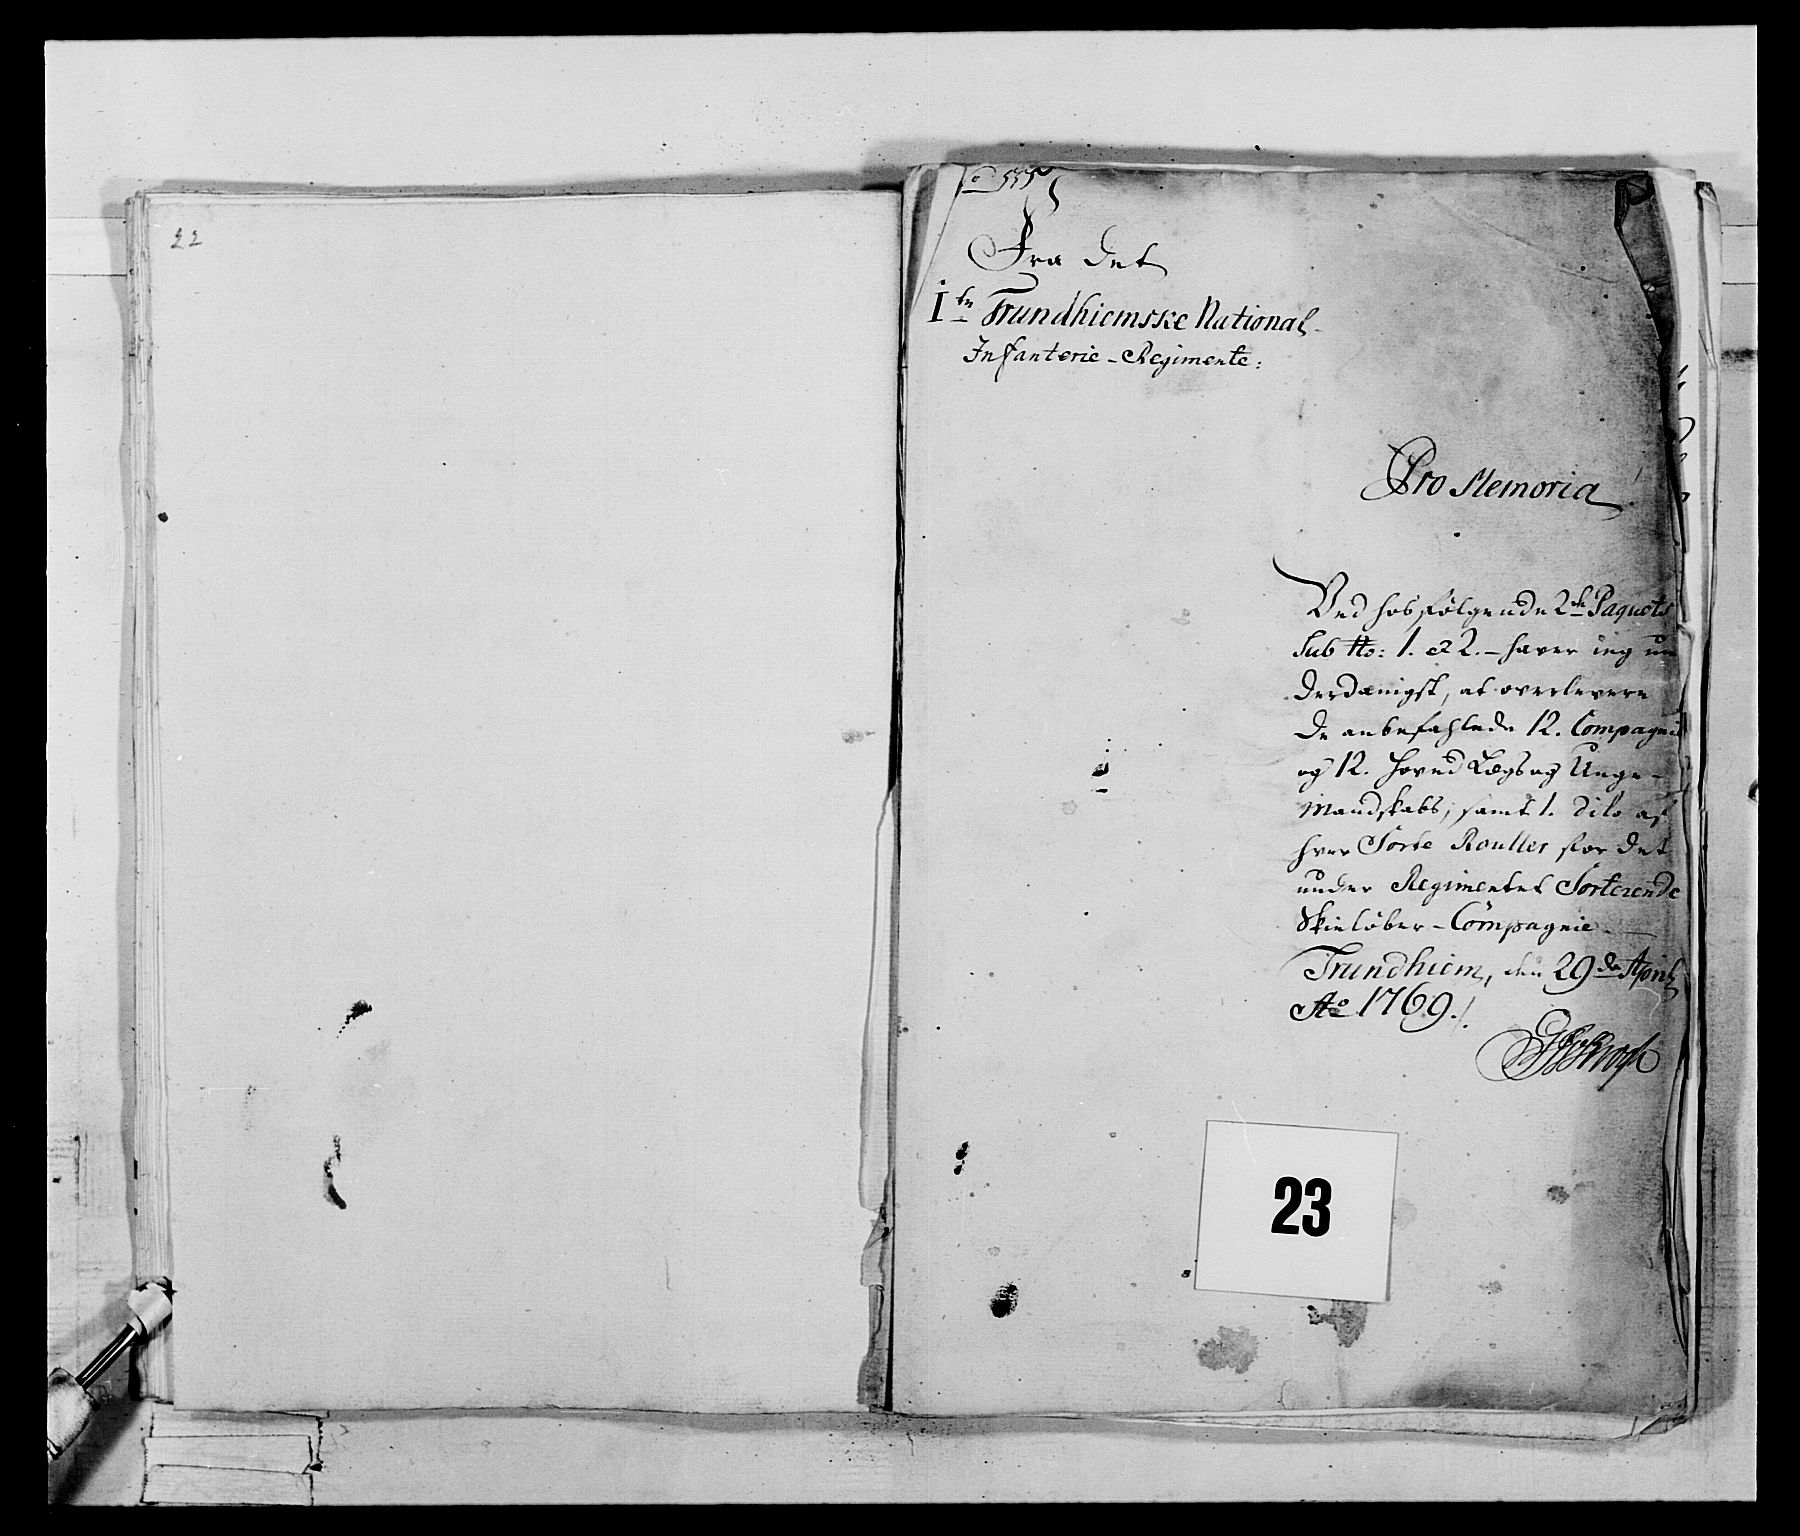 22
o 555
Fra det
1te Trundhiemske National-
Infanterie-Regimente:
Pro Memoria!
Ved hosfølgende 2de Paquets
Sub No: 1. et 2. - haver ieg un
derdanigst, at overlevere
de anbefahlede 12. Compagnie
og 12. Hoved Lægs og Unge-
Mandskabs, samt 1. dito af
hver Sorte Rouller for det
under Regimentet Sorterende
Skieløber-Compagnie.
Trundhiem, den 29de April
Ao 1769./.
23